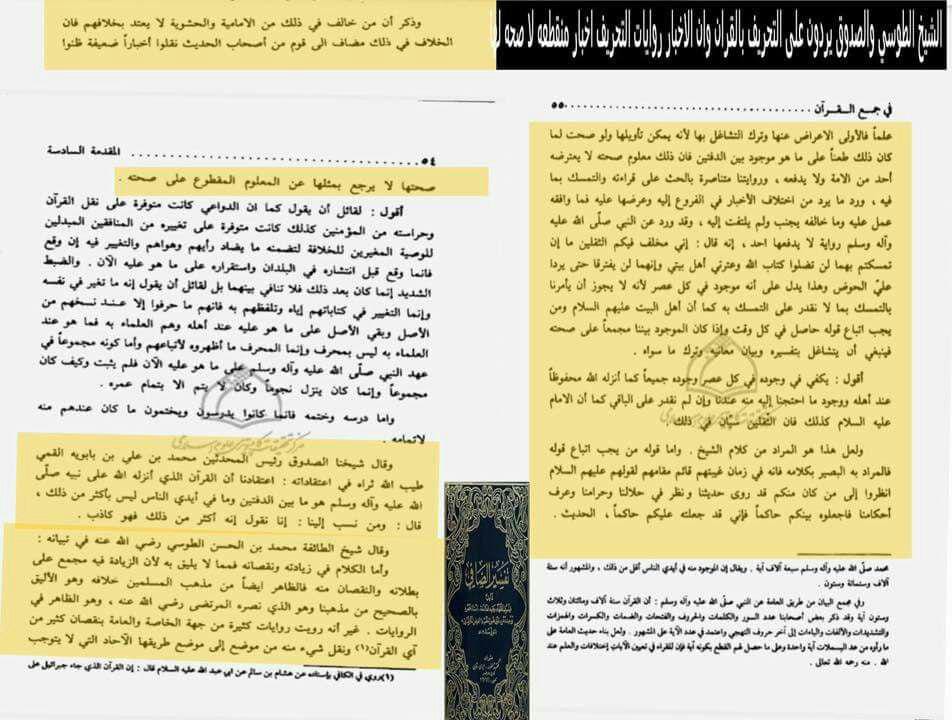 الشيخ الطوسي والصدوق يردون على التحريف بالقران وان الاخبار روايات التحريف اخبار منقطعه لا صحه لها
وذكر أن من خالف في ذلك من الامامية والحشوية لا يعتد بخلافهم فان
الخلاف في ذلك مضاف الى قوم من أصحاب الحديث نقلوا أخباراً ضعيفة ظنوا
٥٤ المقدمة السادسة
صحتها لا يرجع بمثلها عن المعلوم المقطوع على صحته .
أقول : لقائل أن يقول كما ان الدواعي كانت متوفرة على نقل القرآن
وحراسته من المؤمنين كذلك كانت متوفرة على تغييره من المنافقين المبدلين
للوصية المغيرين للخلافة لتضمنه ما يضاد رأيهم وهواهم والتغيير فيه إن وقع
فانما وقع قبل انتشاره في البلدان واستقراره على ما هو عليه الآن . والضبط
الشديد إنما كان بعد ذلك فلا تنافي بينهما بل لقائل أن يقول إنه ما تغير في نفسه
وإنما التغيير في كتاباتهم إياه وتلفظهم به فانهم ما حرفوا إلا عند نسخهم من
الأصل وبقي الأصل على ما هو عليه عند أهله وهم العلماء به فما هو عند
العلماء به ليس بمحرف وإنما المحرف ما أظهروه لأتباعهم وأما كونه مجموعاً في
عهد النبي صلّى الله عليه وآله وسلم على ما هو عليه الآن فلم يثبت وكيف كان
مجموعاً وإنما كان ينزل نجوماً وكان لا يتم الا بتمام عمره .
واما درسه وختمه فانما كانوا يدرسون ويختمون ما كان عندهم منه
لاتمامه .
وقال شيخنا الصدوق رئيس المحدثين محمد بن علي بن بابويه القمي
طيب الله ثراه في اعتقاداته : اعتقادنا أن القرآن الذي أنزله الله على نبيه صلّى
الله عليه وآله وسلم هو ما بين الدفتين وما في أيدي الناس ليس بأكثر من ذلك ،
قال : ومن نسب إلينا : إنا نقول إنه أكثر من ذلك فهو كاذب .
وقال شيخ الطائفة محمد بن الحسن الطوسي رضي الله عنه في تبيانه :
وأما الكلام في زيادته ونقصانه فمما لا يليق به لأن الزيادة فيه مجمع على
بطلانه والنقصان منه فالظاهر ايضاً من مذهب المسلمين خلافه وهو الأليق
بالصحيح من مذهبنا وهو الذي نصره المرتضى رضي الله عنه ، وهو الظاهر في
الروايات . غير أنه رويت روايات كثيرة من جهة الخاصة والعامة بنقصان كثير من
آي القرآن(١) ونقل شيء منه من موضع إلى موضع طريقها الآحاد التي لا يتوجب
(١)روي في الكافي بإسناده عن هشام بن سالم عن ابي عبد الله عليه السلام قال : إن القرآن الذي جاء جبرائيل على
في جمع القرآن ٥٥
علماً فالأولى الاعراض عنها وترك التشاغل بها لأنه يمكن تأويلها ولو صحت لما
كان ذلك طعناً على ما هو موجود بين الدفتين فان ذلك معلوم صحته لا يعترضه
أحد من الامة ولا يدفعه ، وروايتنا متناصرة بالحث على قراءته والتمسك بما
فيه ، ورد ما يرد من اختلاف الأخبار في الفروع إليه وعرضها عليه فما وافقه
عمل عليه وما خالفه يجنب ولم يلتفت إليه ، وقد ورد عن النبي صلّى الله عليه
وآله وسلم رواية لا يدفعها احد ، إنه قال : إني مخلف فيكم الثقلين ما إن
تمسكتم بهما لن تضلوا كتاب الله وعترتي أهل بيتي وإنهما لن يفترقا حتى يردا
عليّ الحوض وهذا يدل على أنه موجود في كل عصر لأنه لا يجوز أن يأمرنا
بالتمسك بما لا نقدر على التمسك به كما أن أهل البيت عليهم السلام ومن
يجب اتباع قوله حاصل في كل وقت وإذا كان الموجود بيننا مجمعاً على صحته
فينبغي أن يتشاغل بتفسيره وبيان معانيه وترك ما سواه .
أقول : يكفي في وجوده في كل عصر وجوده جميعاً كما أنزله الله محفوظاً
عند أهله ووجود ما احتجنا إليه منه عندنا وإن لم نقدر على الباقي كما أن الامام
عليه السلام كذلك فان الثقلين سيّان في ذلك
ولعل هذا هو المراد من كلام الشيخ . واما قوله من يجب اتباع قوله
فالمراد به البصير بكلامه فانه في زمان غيبتهم قائم مقامهم لقولهم عليهم السلام
انظروا إلى من كان منكم قد روى حديثنا ونظر في حلالنا وحرامنا وعرف
أحكامنا فاجعلوه بينكم حاكماً فإني قد جعلته عليكم حاكماً ، الحديث .
محمد صلّى الله عليه وآله وسلم سبعة آلاف آية . ويقال إن الموجود منه في أيدي الناس أقل من ذلك ، والمشهور أنه ستة
آلاف وستمائة وستون .
وفي مجمع البيان من طريق العامة عن النبي صلّى الله عليه وآله وسلم : أن القرآن ستة آلاف ومائتان وثلاث
وستون آية وقد ذكر بعض أصحابنا عدد السور والكلمات والحروف والفتحات والضمات والكسرات والهمزات
والتشديدات والألفات والياءات إلى آخر حروف التهجي واعتمد في عدد الآية على المشهور . ولعل بناء حديث العامة على
ما رأوه من عد البسملات آية واحدة وعلى ما حصل لهم القطع بكونه آية فإن للقراء في تعيين الآيات إختلافات والعلم عند
الله . منه رحمه الله تعالى .
تفسير الصافي